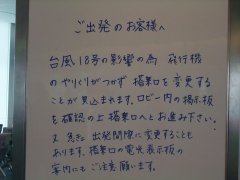 ご出発のお客様へ
台風18号の影響の為 飛行機
のやりくりがつかず 搭乗口を変更する
ことが見込まれます。ロビー内の掲示板
を確認の上 搭乗口へとお進み下さい。
又 急な 出発間際に変更することも
あります。搭乗口の電光表示板の
案内にもご注意願います。